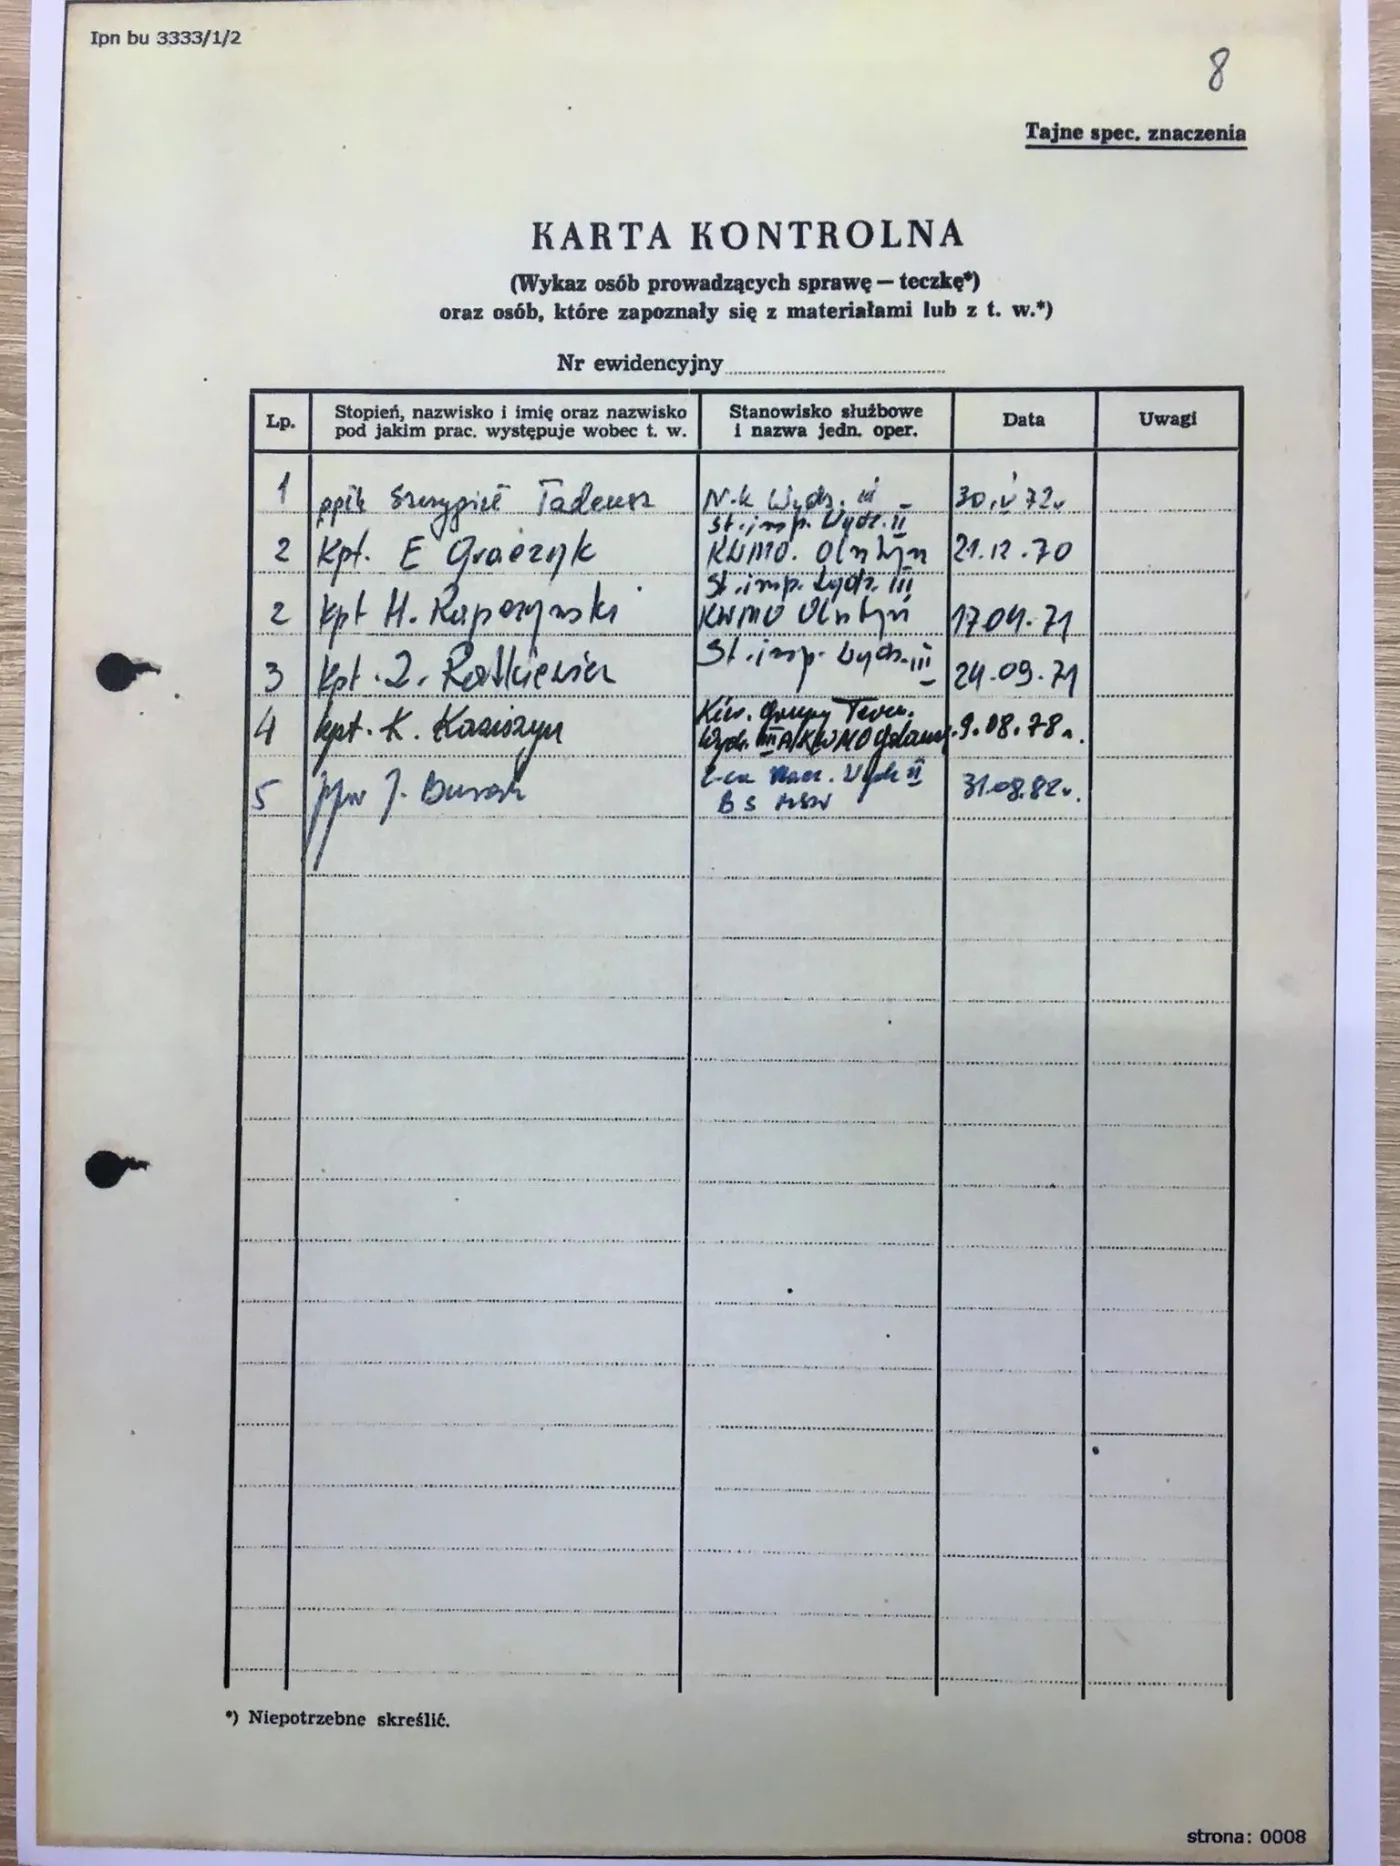 Ipn bu 3333/1/2
8
Tajne spec. znaczenia
KARTA KONTROLNA
(Wykaz osób prowadzących sprawę — teczkę*)
oraz osób, które zapoznały się z materiałami lub z t. w.*)
Nr ewidencyjny
Lp.
Stopień, nazwisko i imię oraz nazwisko
pod jakim prac. występuje wobec t. w.
Stanowisko służbowe
i nazwa jedn. oper.
Data
Uwagi
1 ppłk Tadeusz N-k Wydz. III 30.V 72r
St. insp. Wydz. II
2 Kpt. E Graczyk KWMO. Olsztyn 21.12.70
St. insp. Wydz. III
2 kpt H. Rapczyński KWMO Olsztyn 17.09.71
3 kpt. Z. Ratkiewicz St. insp. Wydz. III 24.09.71
Kier. Grupy Teren.
4 kpt. K. Wydz. IIIA KWMO 9.08.78r.
5 J. Burak Z-ca Nacz. Wydz II 31.08.82r.
BS MSW
*) Niepotrzebne skreślić.
strona: 0008